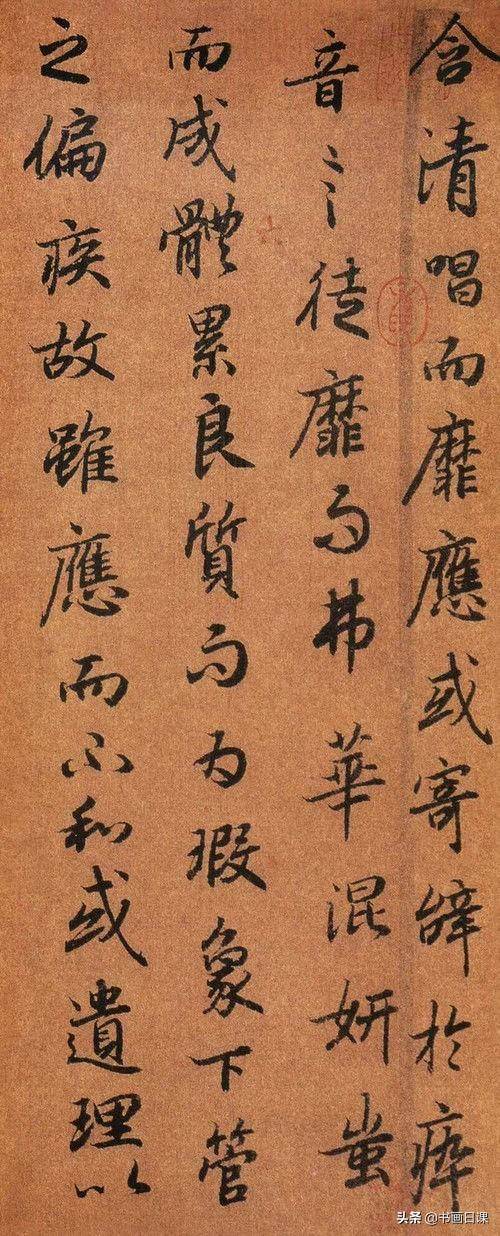 含清唱而靡應或寄辤於瘁
音〻之徒靡而弗華混妍蚩
而成體累良質而为瑕象下管
之偏疾故雖應而不和或遺理以
头条 @书画日课